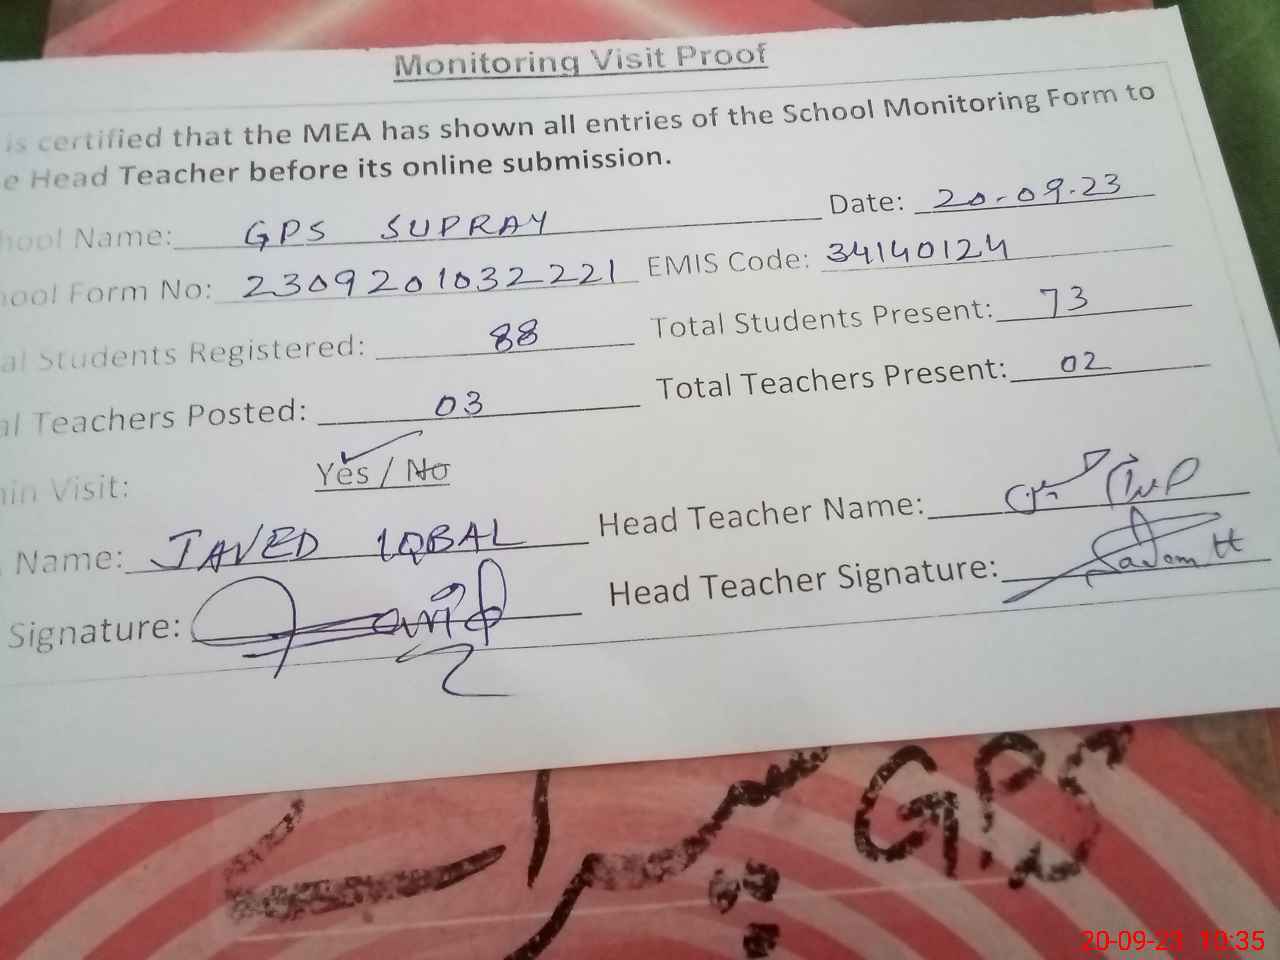 Monitoring Visit Proof
is certified that the MEA has shown all entries of the School Monitoring Form to
e Head Teacher before its online submission.
hool Name: GPS SUPRAY Date: 20-09-23
hool Form No: 2309201032221 EMIS Code: 34140124
al Students Registered: 88 Total Students Present: 73
al Teachers Posted: 03 Total Teachers Present: 02
in Visit: Yes / No
Name: JAVED IQBAL Head Teacher Name:
Signature: Head Teacher Signature:
GPS
20-09-23 10:35